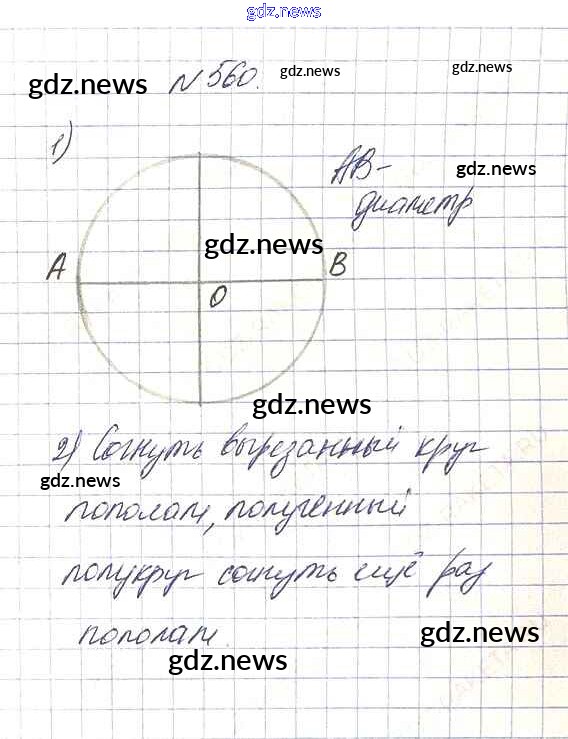 gdz.news
gdz.news № 560. gdz.news gdz.news
1)
AB-
gdz.news
диаметр
gdz.news
A B
O
gdz.news
2) Согнуть вырезанный круг
gdz.news
пополам, полученный
полукруг согнуть ещё раз
пополам.
gdz.news
gdz.news